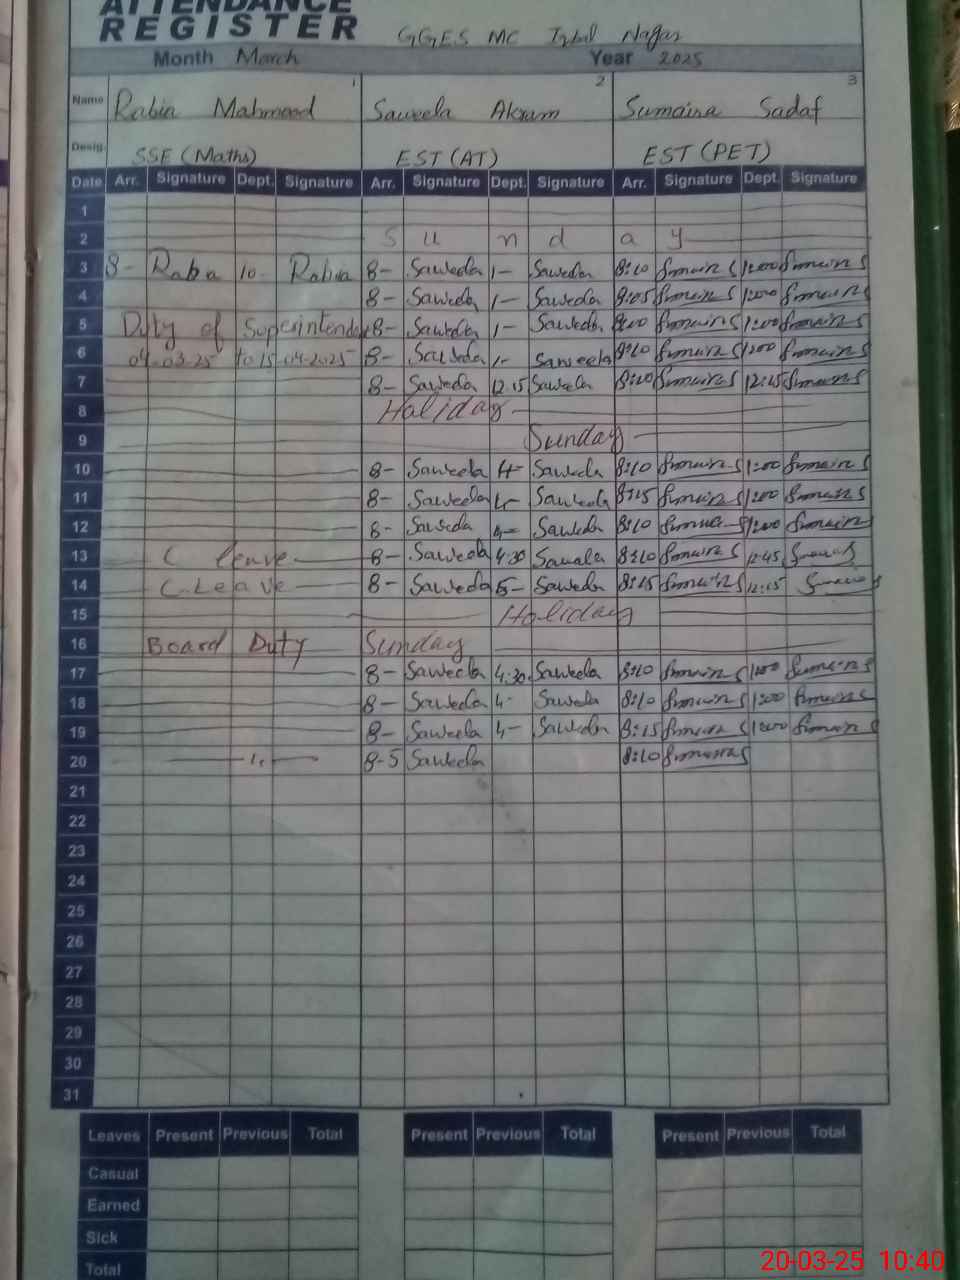 ATTENDANCE
REGISTER GGES MC Iqbal Nagar
Month March Year 2025
1 2 3
Name Rabia Mahmood Saweela Akram Sumaira Sadaf
Desig. SSE (Maths) EST (AT) EST (PET)
Date Arr. Signature Dept. Signature Arr. Signature Dept. Signature Arr. Signature Dept. Signature
1
2 S u n d a y
3 8- Rabia 10- Rabia 8- Saweela 1- Saweela 8:10
4 8- Saweela 1- Saweela 8:05
5 Duty of Superintendent 8- Saweela 1- Saweela
6 04-03-25 to 15-04-2025 8- Saweela 1- Saweela 8:10
7 8- Saweela 12.15 Saweela 8:10 12:15
8 Holiday
9 Sunday
10 8- Saweela 4- Saweela 8:10 1:00
11 8- Saweela 4- Saweela 8:15
12 8- Saweela 4- Saweela 8:10
13 C leave 8- Saweela 4:30 Saweela 8:10 12:45
14 C. Leave 8- Saweela 5- Saweela 8:15 12:15
15 Holiday
16 Board Duty Sunday
17 8- Saweela 4:30 Saweela 8:10
18 8- Saweela 4- Saweela 8:10
19 8- Saweela 4- Saweela 8:15
20 8-5 Saweela 8:10
21
22
23
24
25
26
27
28
29
30
31
Leaves Present Previous Total Present Previous Total Present Previous Total
Casual
Earned
Sick
Total
20-03-25 10:40